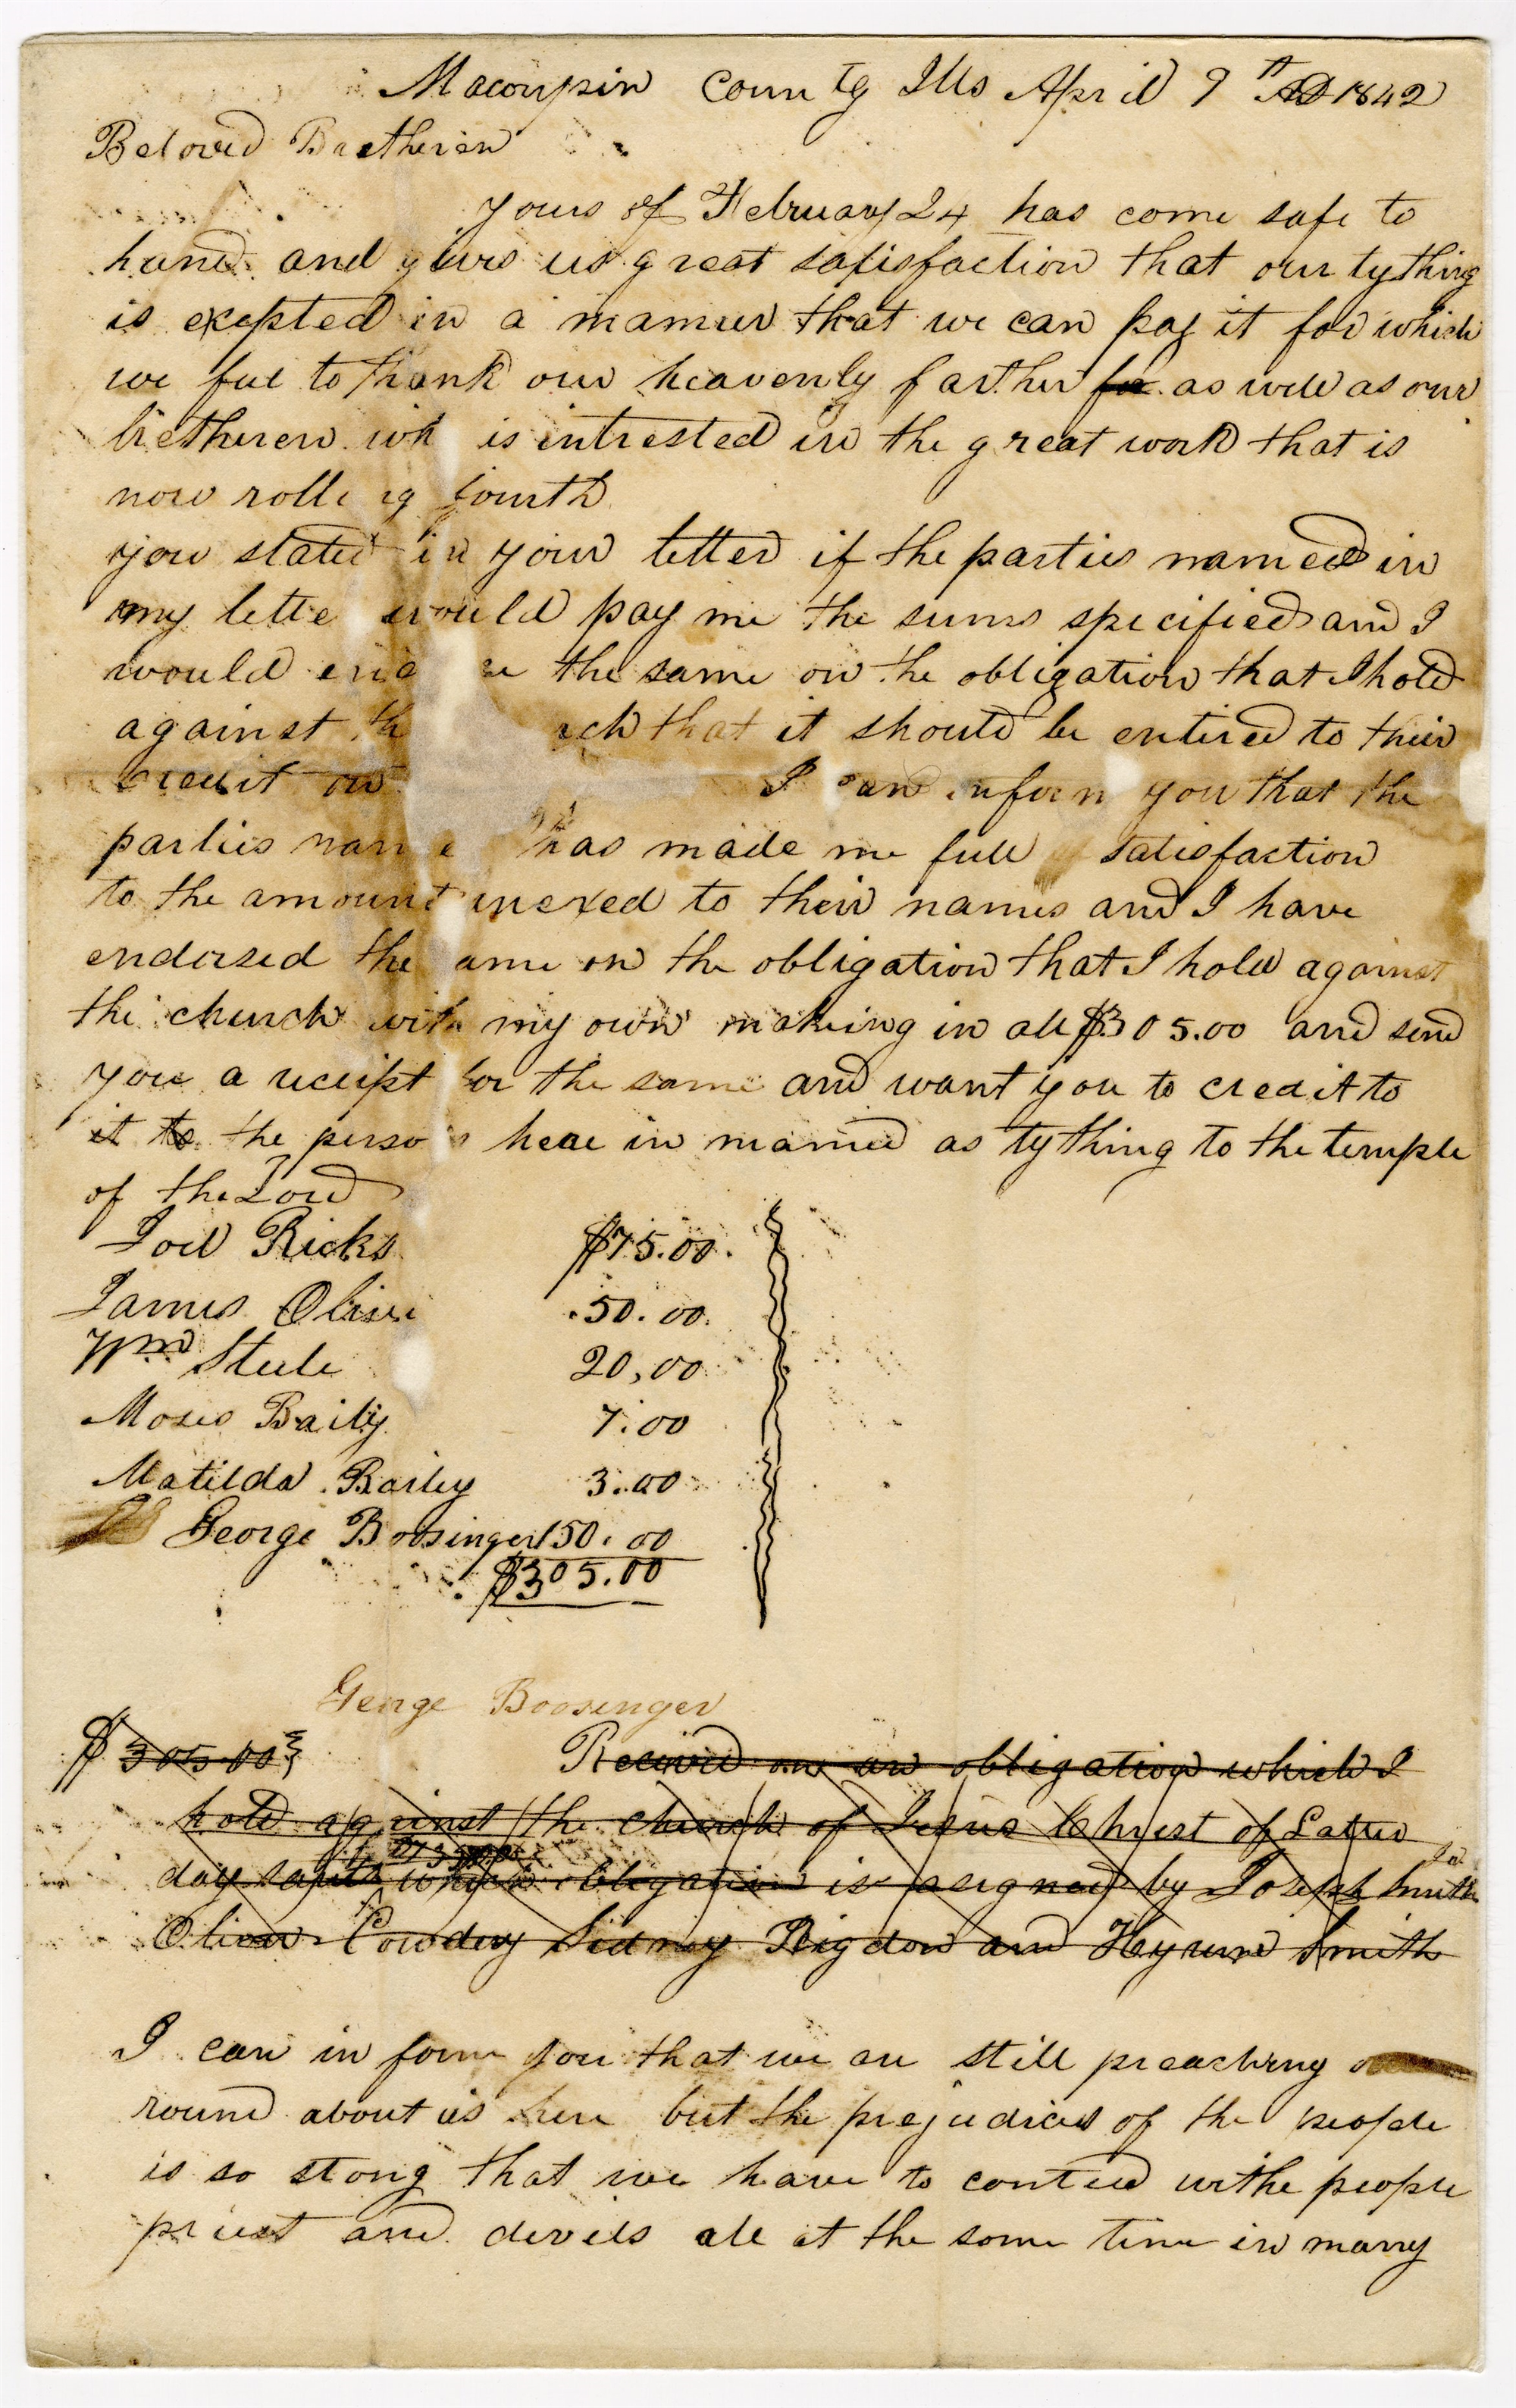 Macoupin County Ills April 9th AD 1842
Beloved Bretheren
yours of February 24 has come safe to
hand and gives us great satisfaction that our tything
is excepted in a manner that we can pay it for which
we feel to thank our heavenly farther for as well as our
bretheren wh is intrested in the great work that is
now rolli g fourth
you stated in your letter if the parties named in
my lette would pay me the sums specified and I
would the same on the obligation that I hold
against th rch that it should be entired to their
credit on I can inform you that the
parties name has made me full satisfaction
to the amount inexed to their names and I have
endorsed the ame on the obligation that I hold against
the church with my own making in all $305.00 and send
you a receipt for the same and want you to credit to
it to the perso s hear in named as tything to the temple
of the Lord
Joel Ricks $75.00
James Olive 50.00
Wm Steele 20,00
Moses Baily 7.00
Matilda Bailey 3.00
George Boosinger 150.00
$305.00
George Boosinger
$305.00 Received on an obligation which I
hold against the church of Jesus Christ of Latter
day saints which obligation is asigned by Joseph Smith
Oliver Cowdery Sidney Rigdon and Hyrum Smith
I can in form you that we are still preaching
round about us here but the prejudices of the people
is so stong that we have to conted withe people
priest and devils all at the same time in many